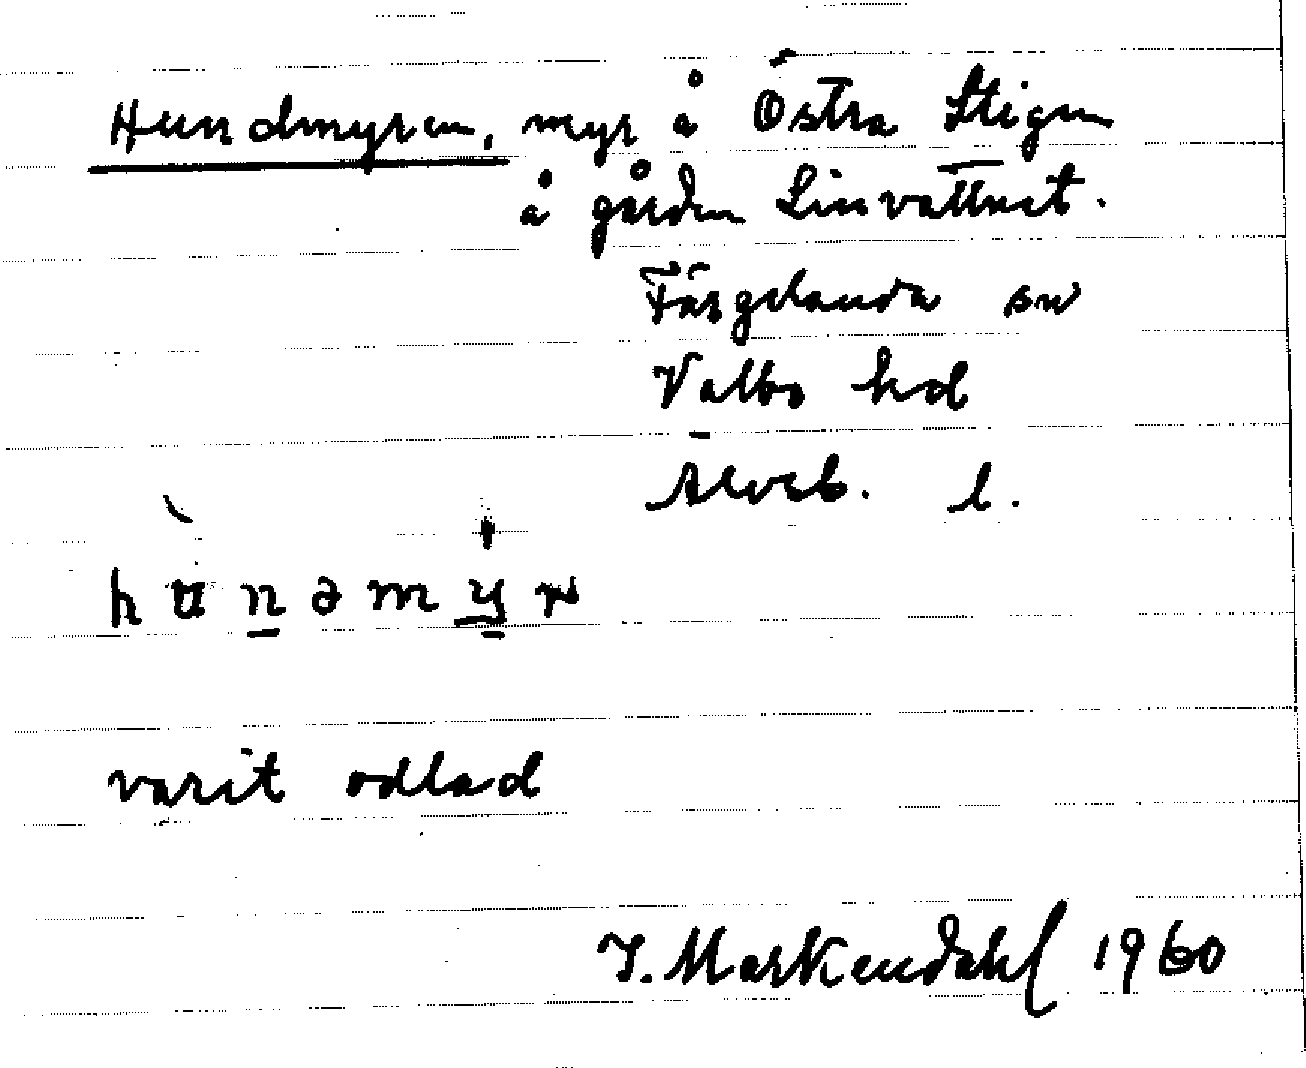 Hundmyren, myr å Östra Stigen
å gården Linvattnet.
Färgelanda sn
Valbo hd
Älvsb. l.
hʉ̀nəmyr
varit odlad
I. Markendahl 1960